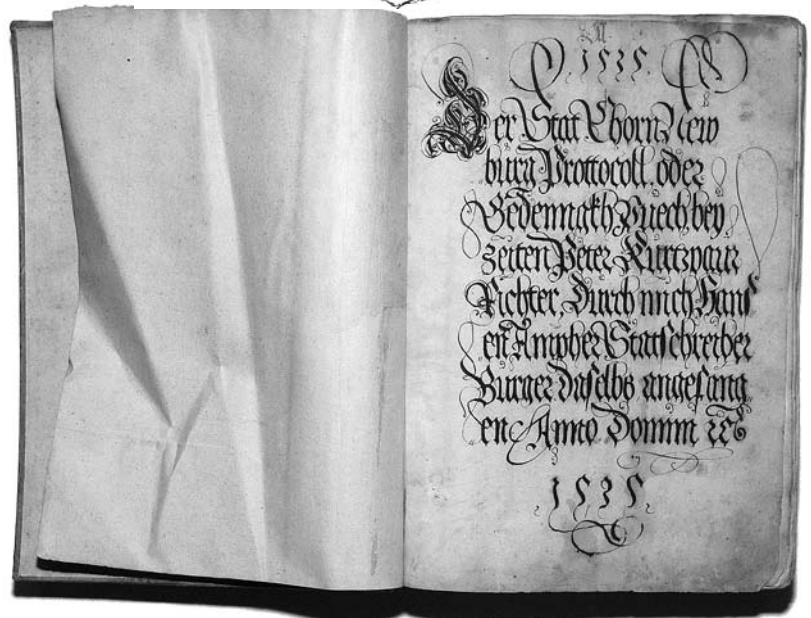 1535.
Der Stat Khorn New
burg Prottocoll, oder
Gedennckh Puech bey
zeiten Peter Kurtzpaur
Richter, Durch mich Hans
en Ampher Statschreiber
Burger daselbs angefang
en Anno Domini ꝛc
1535.